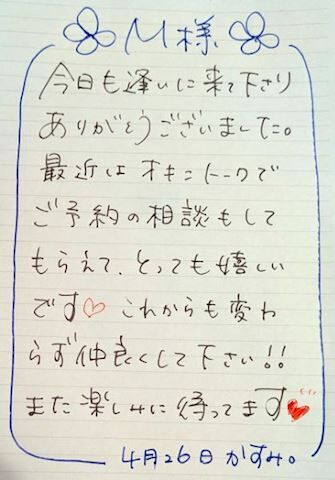 M様
今日も逢いに来て下さり
ありがとうございました。
最近はオキニトークで
ご予約の相談もして
もらえて、とっても嬉しい
です♡ これからも変わ
らず仲良くして下さい!!
また楽しみに待ってます♥
4月26日 かすみ。